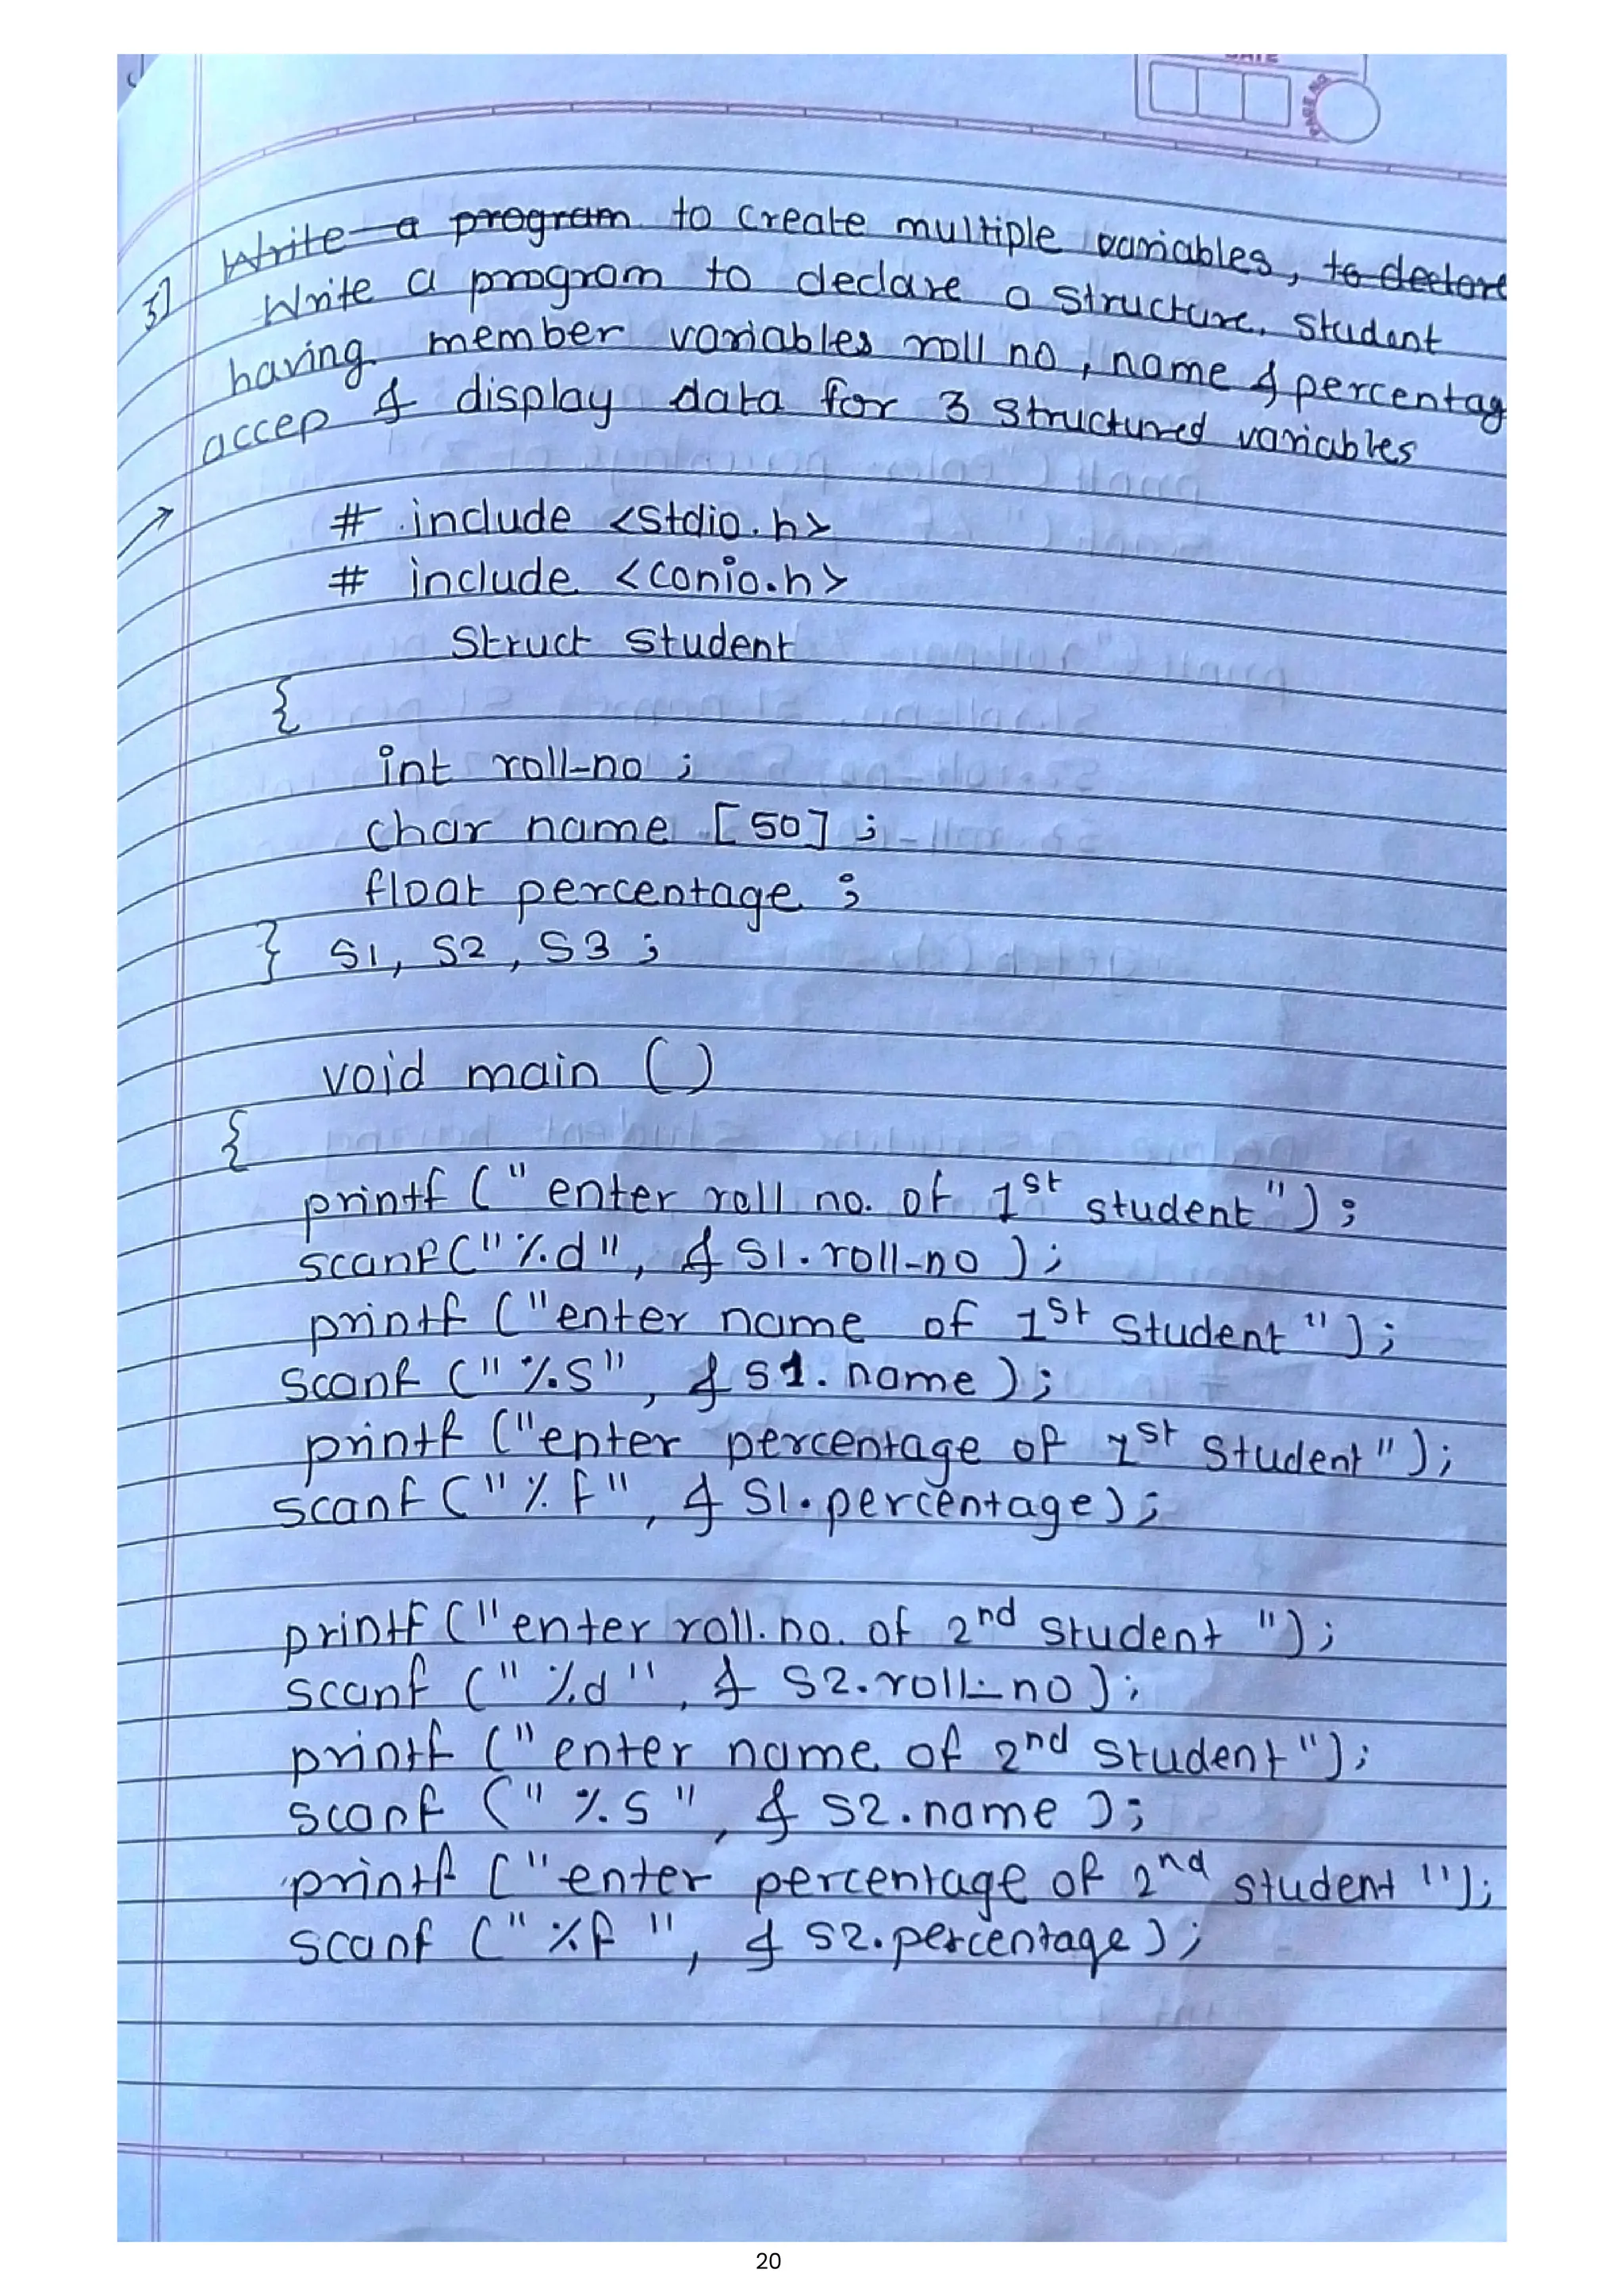 DATE
PAGE NO.
Write a program to create multiple variables, to declare
3] Write a program to declare a structure. student
having member variables roll no, name & percentag
accep & display data for 3 structured variables
→ # include <stdio.h>
# include <conio.h>
Struct student
{
int roll-no ;
char name [50] ;
float percentage ;
} S1, S2, S3 ;
void main ()
{
printf (" enter roll no. of 1st student") ;
scanf (" %d", & S1.roll-no ) ;
printf ("enter name of 1st student ") ;
scanf (" %s", & S1. name ) ;
printf ("enter percentage of 1st student") ;
scanf (" % f", & S1.percentage) ;
printf ("enter roll. no. of 2nd student ") ;
scanf (" %d ", & S2.roll-no) ;
printf (" enter name of 2nd student") ;
scanf (" %s ", & S2.name ) ;
printf ("enter percentage of 2nd student ") ;
scanf (" %f ", & S2.percentage) ;
20